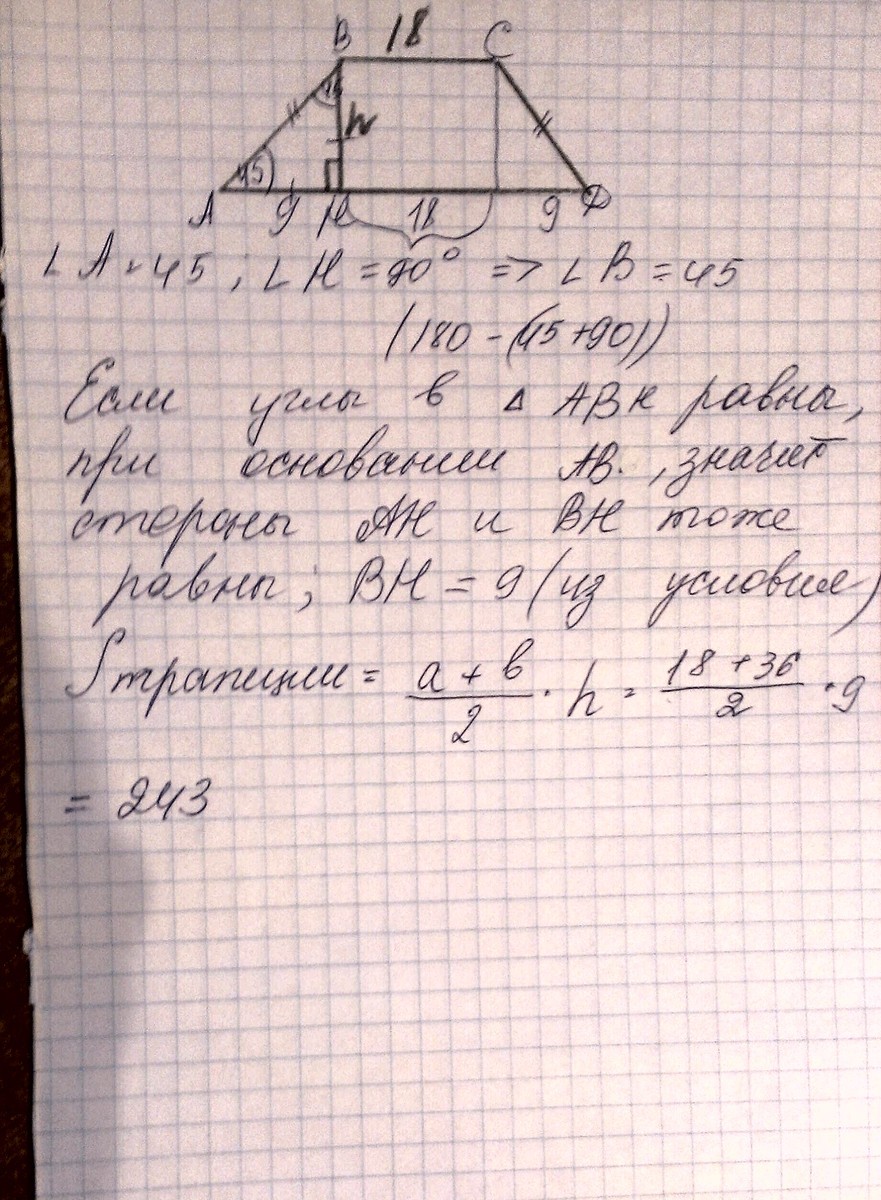 B 18 C
45
h
45
A 9 H 18 9 D
∠A = 45 ; ∠H = 90° => ∠B = 45
(180 - (45+90))
Если углы в △ ABH равны,
при основании AB. , значит
стороны AH и BH тоже
равны; BH = 9 (из условия)
Sтрапеции = a + b / 2 · h = 18 + 36 / 2 · 9
= 243